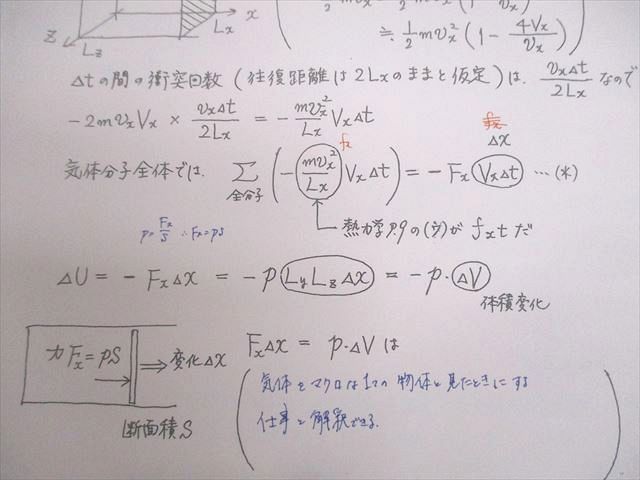 z
Lz
Lx
x
≒ 1/2 mvx² (1 - 4Vx/vx)
Δtの間の衝突回数 (往復距離は2Lxのままと仮定) は、 vxΔt/2Lx なので
-2mvxVx × vxΔt/2Lx = - mvx²/Lx VxΔt
fx
Δx
気体分子全体では、 Σ全分子 (- mvx²/Lx VxΔt) = -Fx VxΔt …(*)
熱力学P.9の(ウ)が fxtだ
p=Fx/S ∴Fx=pS
ΔU = -FxΔx = -p LyLzΔx = -p·ΔV
体積変化
力Fx=pS ⇒ 変化Δx
断面積S
FxΔx = p·ΔV は
気体をマクロな1つの物体と見たときにする
仕事と解釈できる.